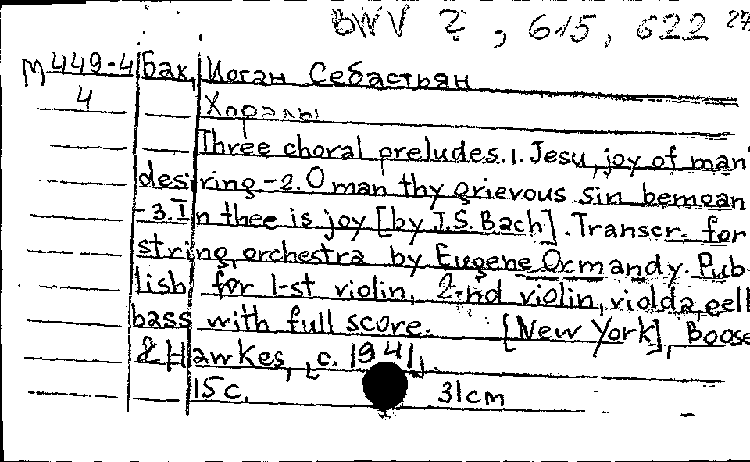 BWV ?, 615, 622 27
М 449-4 Бах, Иоган Себастьян
4 Хоралы
Three choral preludes. 1. Jesu, joy of man'
desiring - 2. O man thy grievous sin bemoan
- 3. In thee is joy [by J.S. Bach]. Transcr. for
string orchestra by Eugene Ormandy. Pub
lish for 1-st violin, 2-nd violin, violda, cell
bass with full score. [New York], Boose
& Hawkes, [c. 1941].
15 c. 31cm